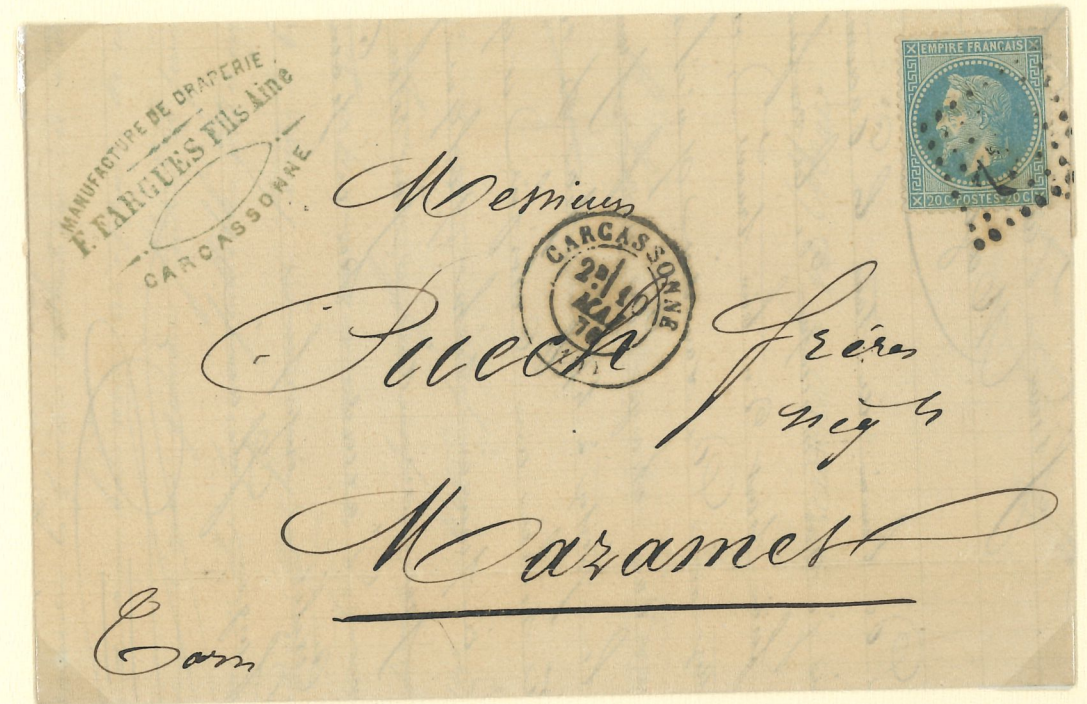 MANUFACTURE DE DRAPERIE
F. FARGUES Fils Aine
CARCASSONNE
EMPIRE FRANCAIS
20 C POSTES 20 C
Messieurs
CARCASSONNE
2E/
MAI
70
(10)
Puech frères
nég ts
Mazamet
Tarn